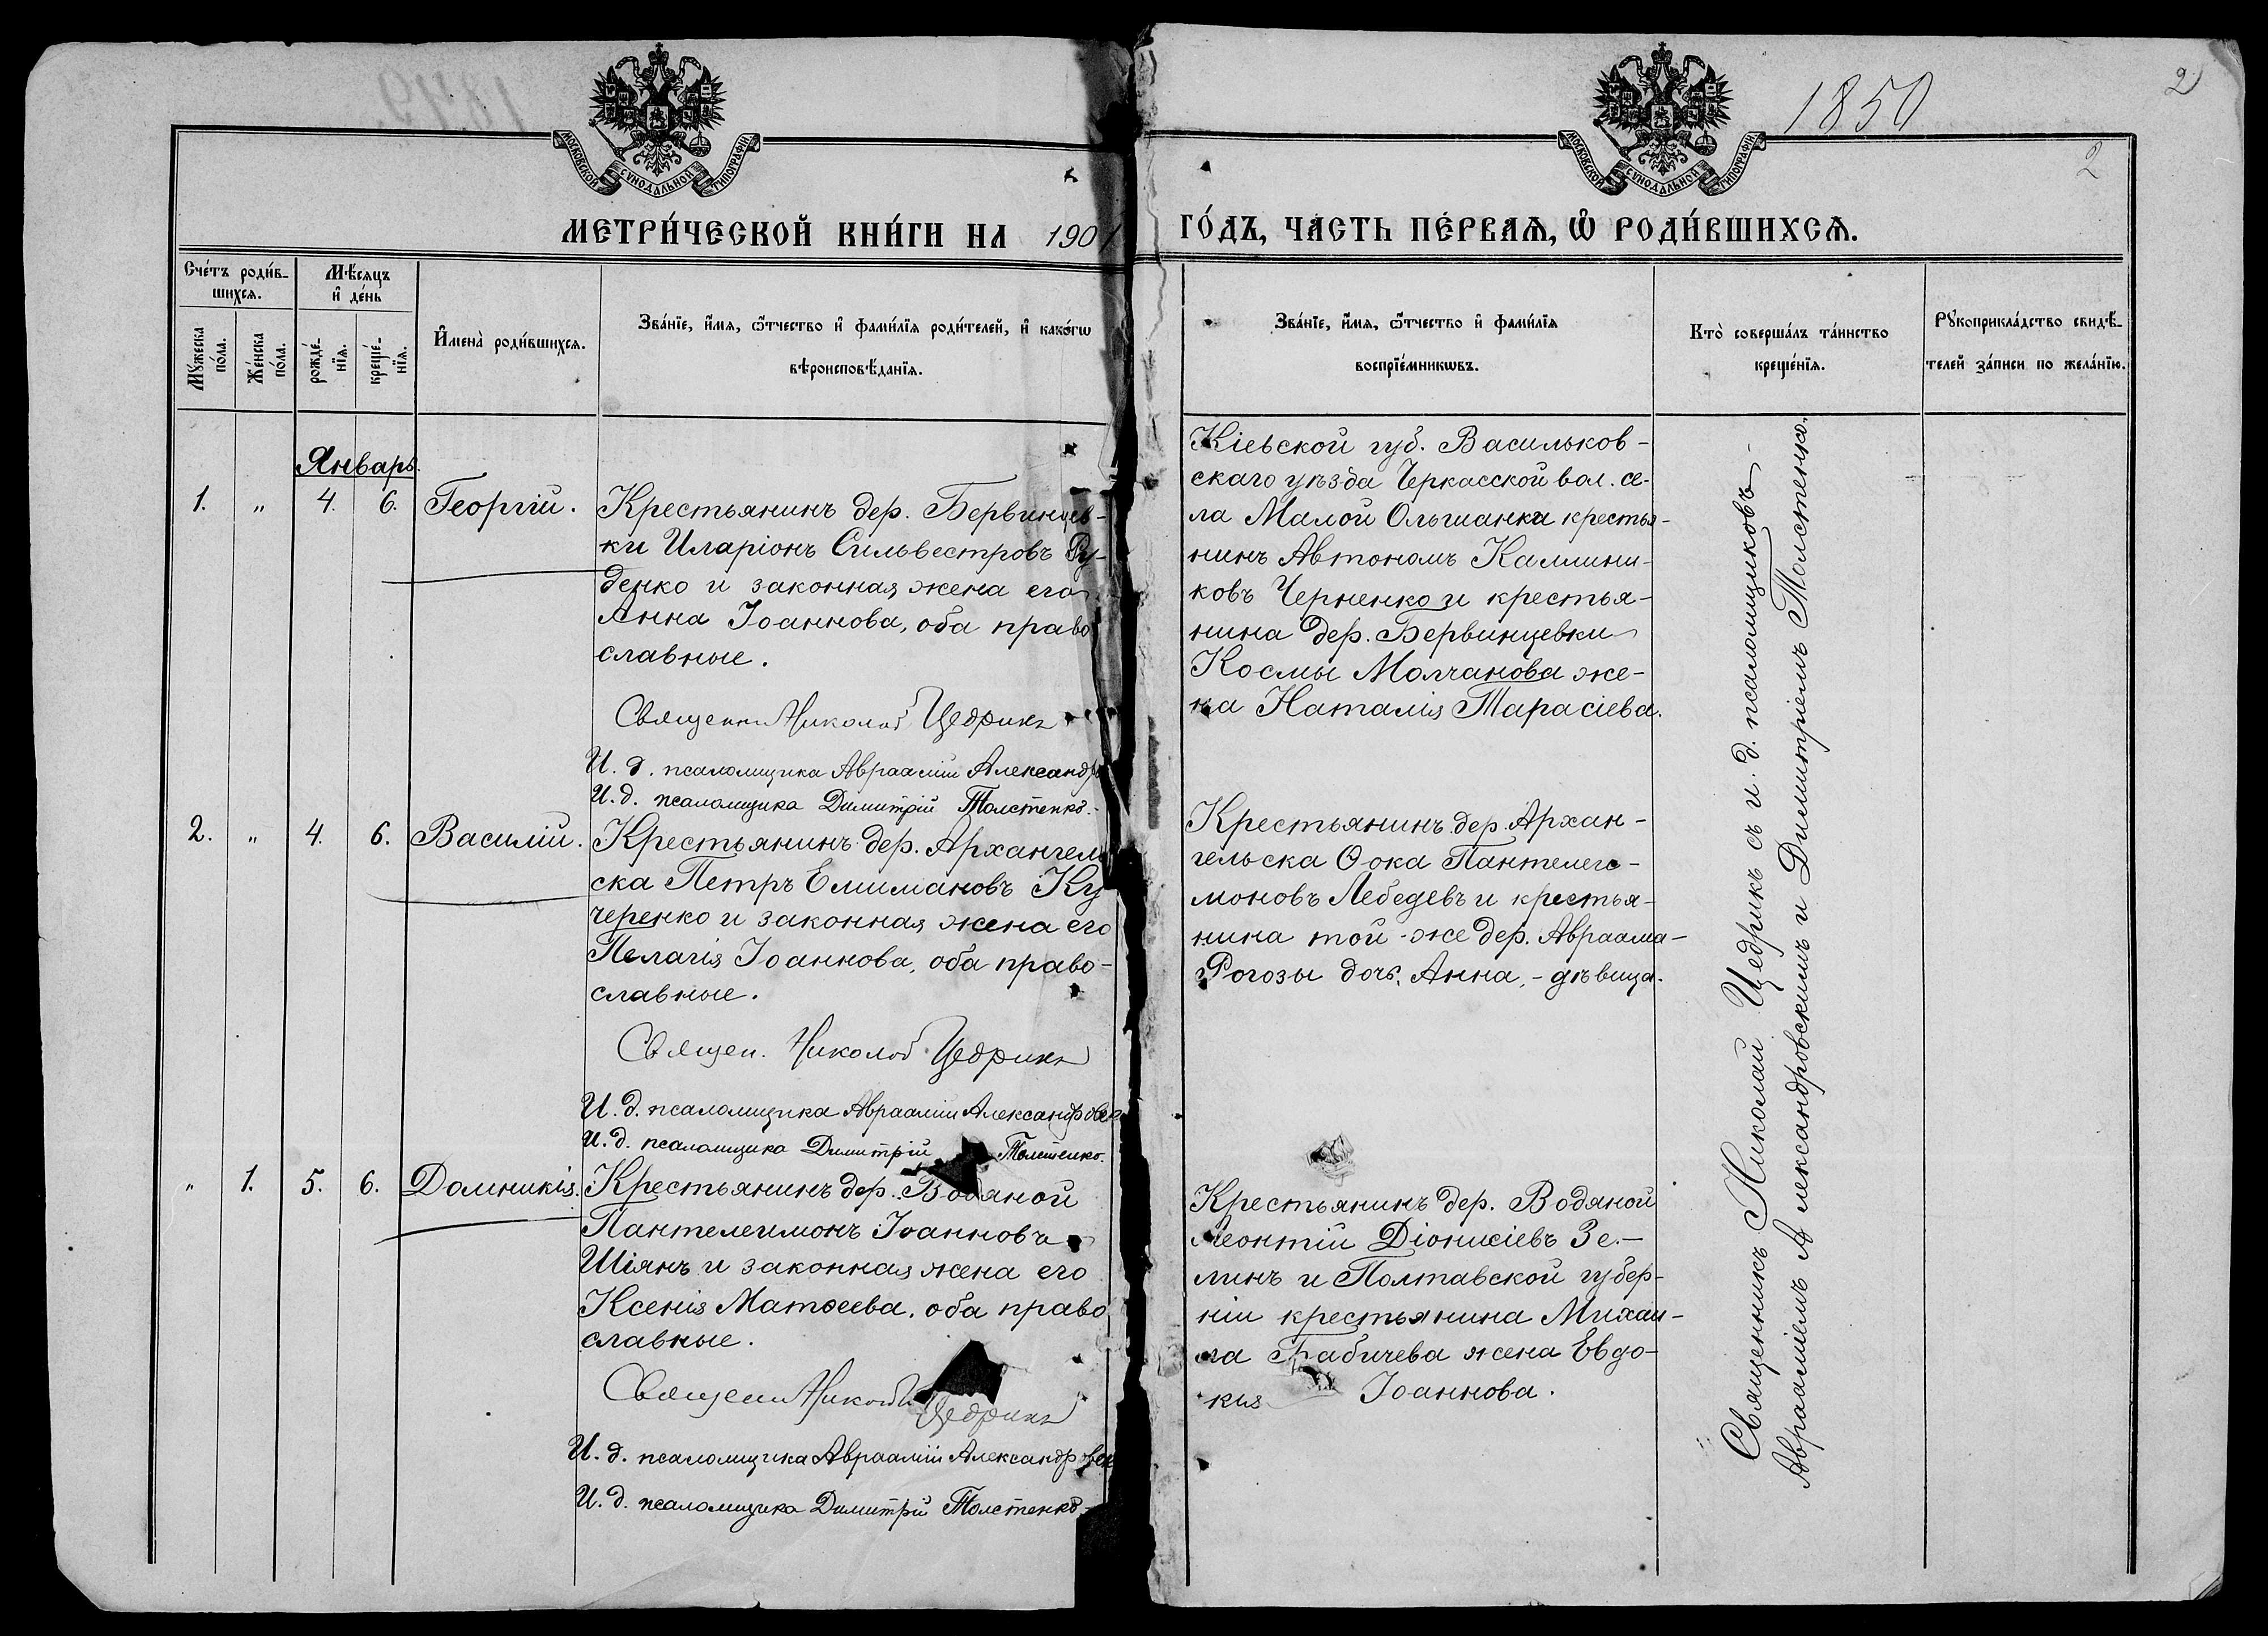 1850
2
2
МОСКОВСКОЙ СѴНОДАЛЬНОЙ ТИПОГРАФІИ.
МОСКОВСКОЙ СѴНОДАЛЬНОЙ ТИПОГРАФІИ.
МЕТРИ́ЧЕСКОЙ КНИ́ГИ НА 1901 ГО́ДЪ, ЧА́СТЬ ПЕ́РВАѦ, Ѡ҆ РОДИ́ВШИХСѦ.
Сче́тъ роди́в-
шихсѧ.
Мꙋ́жеска
по́ла.
Же́нска
по́ла.
Мѣ́сѧцъ
и҆ де́нь
рожде́-
нїѧ.
креще́-
нїѧ.
И҆мена̀ роди́вшихсѧ.
Зва́нїе, и҆́мѧ, ѻ҆́тчество и҆ фами́лїѧ роди́телей, и҆ како́гѡ
вѣроисповѣ́данїѧ.
Зва́нїе, и҆́мѧ, ѻ҆́тчество и҆ фами́лїѧ
воспрїе́мникѡвъ.
Кто̀ соверша́лъ та́инство
креще́нїѧ.
Рꙋкоприкла́дство свидѣ́-
телей за́писи по жела́нїю.
Январь.
1. " 4. 6. Георгій.
Крестьянинъ дер. Бервинцев-
ки Иларіонъ Сильвестровъ Ру-
денко и законная жена его
Анна Іоаннова, оба право
славные.
Священн Николай Цедрикъ
И. д. псаломщика Авраамій Александро
И. д. псаломщика Димитрій Толстенко.
Кіевской губ. Васильков-
скаго уѣзда Черкасской вол. се-
ла Малой Ольшанки крестья-
нинъ Автономъ Каллини-
ковъ Черненко и крестья-
нина дер. Бервинцевки
Космы Молчанова же-
на Наталія Тарасіева.
2. " 4. 6. Василій.
Крестьянинъ дер. Архангель
ска Петръ Елимановъ Ку
черенко и законная жена его
Пелагія Іоаннова, оба право-
славные.
Священ. Николай Цедрикъ
И. д. псаломщика Авраамій Александровск
И. д. псаломщика Димитрій Толстенко.
Крестьянинъ дер. Архан-
гельска Ѳока Пантелеи-
моновъ Лебедевъ и крестья-
нина той-же дер. Авраама
Рогозы дочь Анна, - дѣвица.
" 1. 5. 6. Домникія.
Крестьянинъ дер. Водяной
Пантелеимонъ Іоанновъ
Шіянъ и законная жена его
Ксенія Матѳеева, оба право
славные.
Священн Николай Цедрикъ
И. д. псаломщика Авраамій Александровск
И. д. псаломщика Димитрій Толстенко.
Крестьянинъ дер. Водяной
Леонтій Діонисіевъ Зе-
линъ и Полтавской губер-
ніи крестьянина Михаи-
ла Грабичева жена Евдо-
кія Іоаннова.
Священникъ Николай Цедрикъ съ и. д. псаломщиковъ
Авраамiемъ Александровскимъ и Димитріемъ Толстенко.